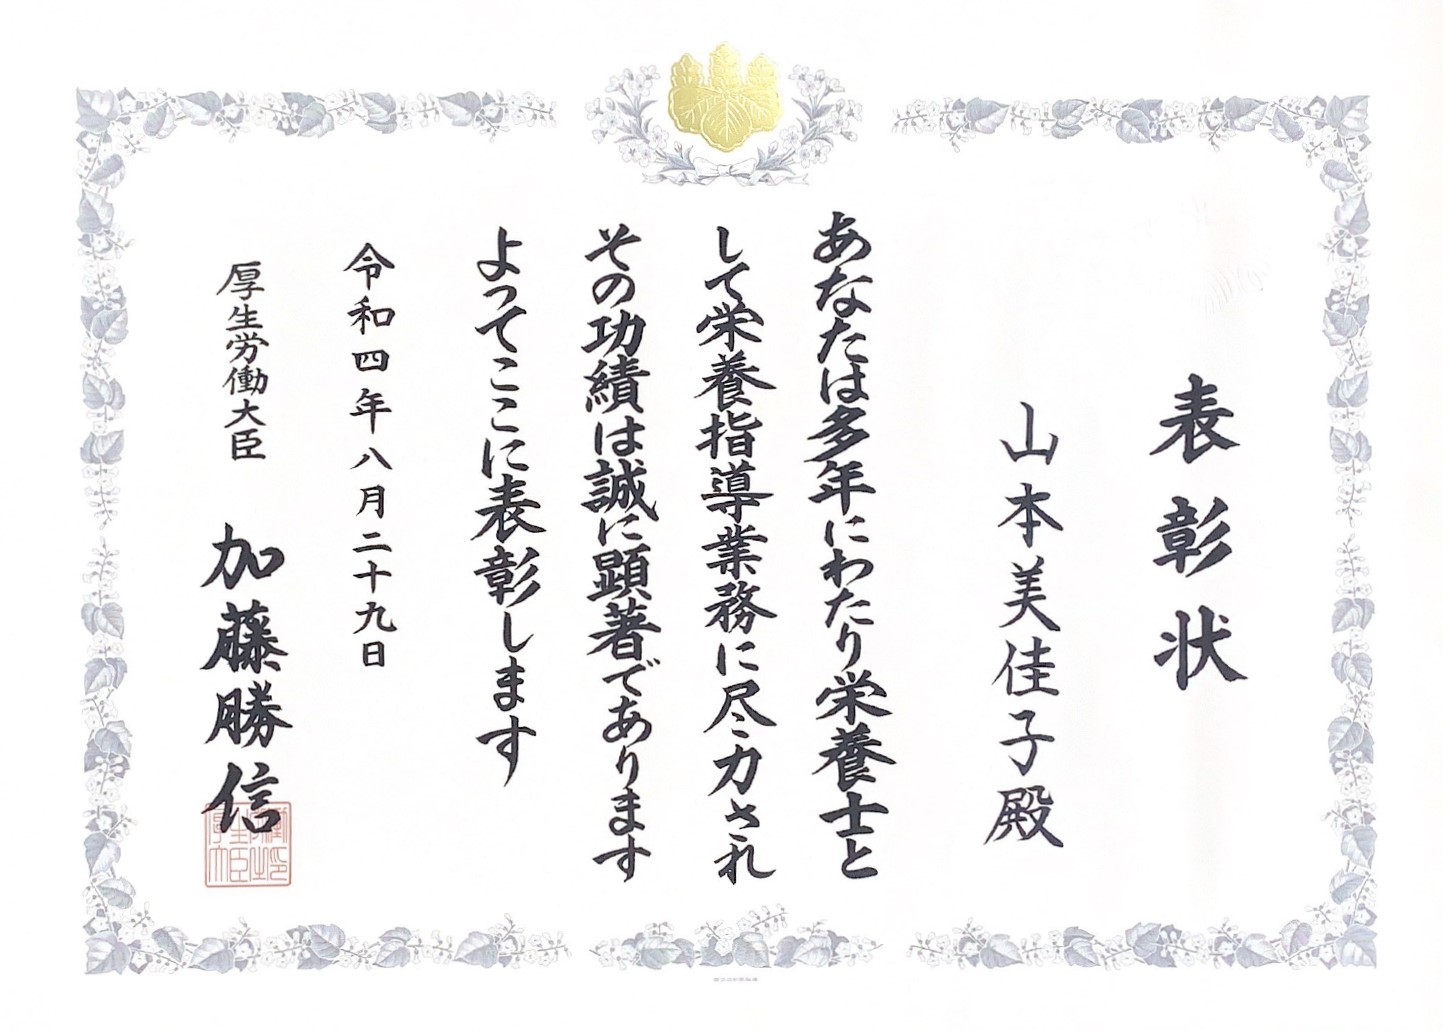 表彰状
山本美佳子殿
あなたは多年にわたり栄養士と
して栄養指導業務に尽力され
その功績は誠に顕著であります
よってここに表彰します
令和四年八月二十九日
厚生労働大臣 加藤勝信